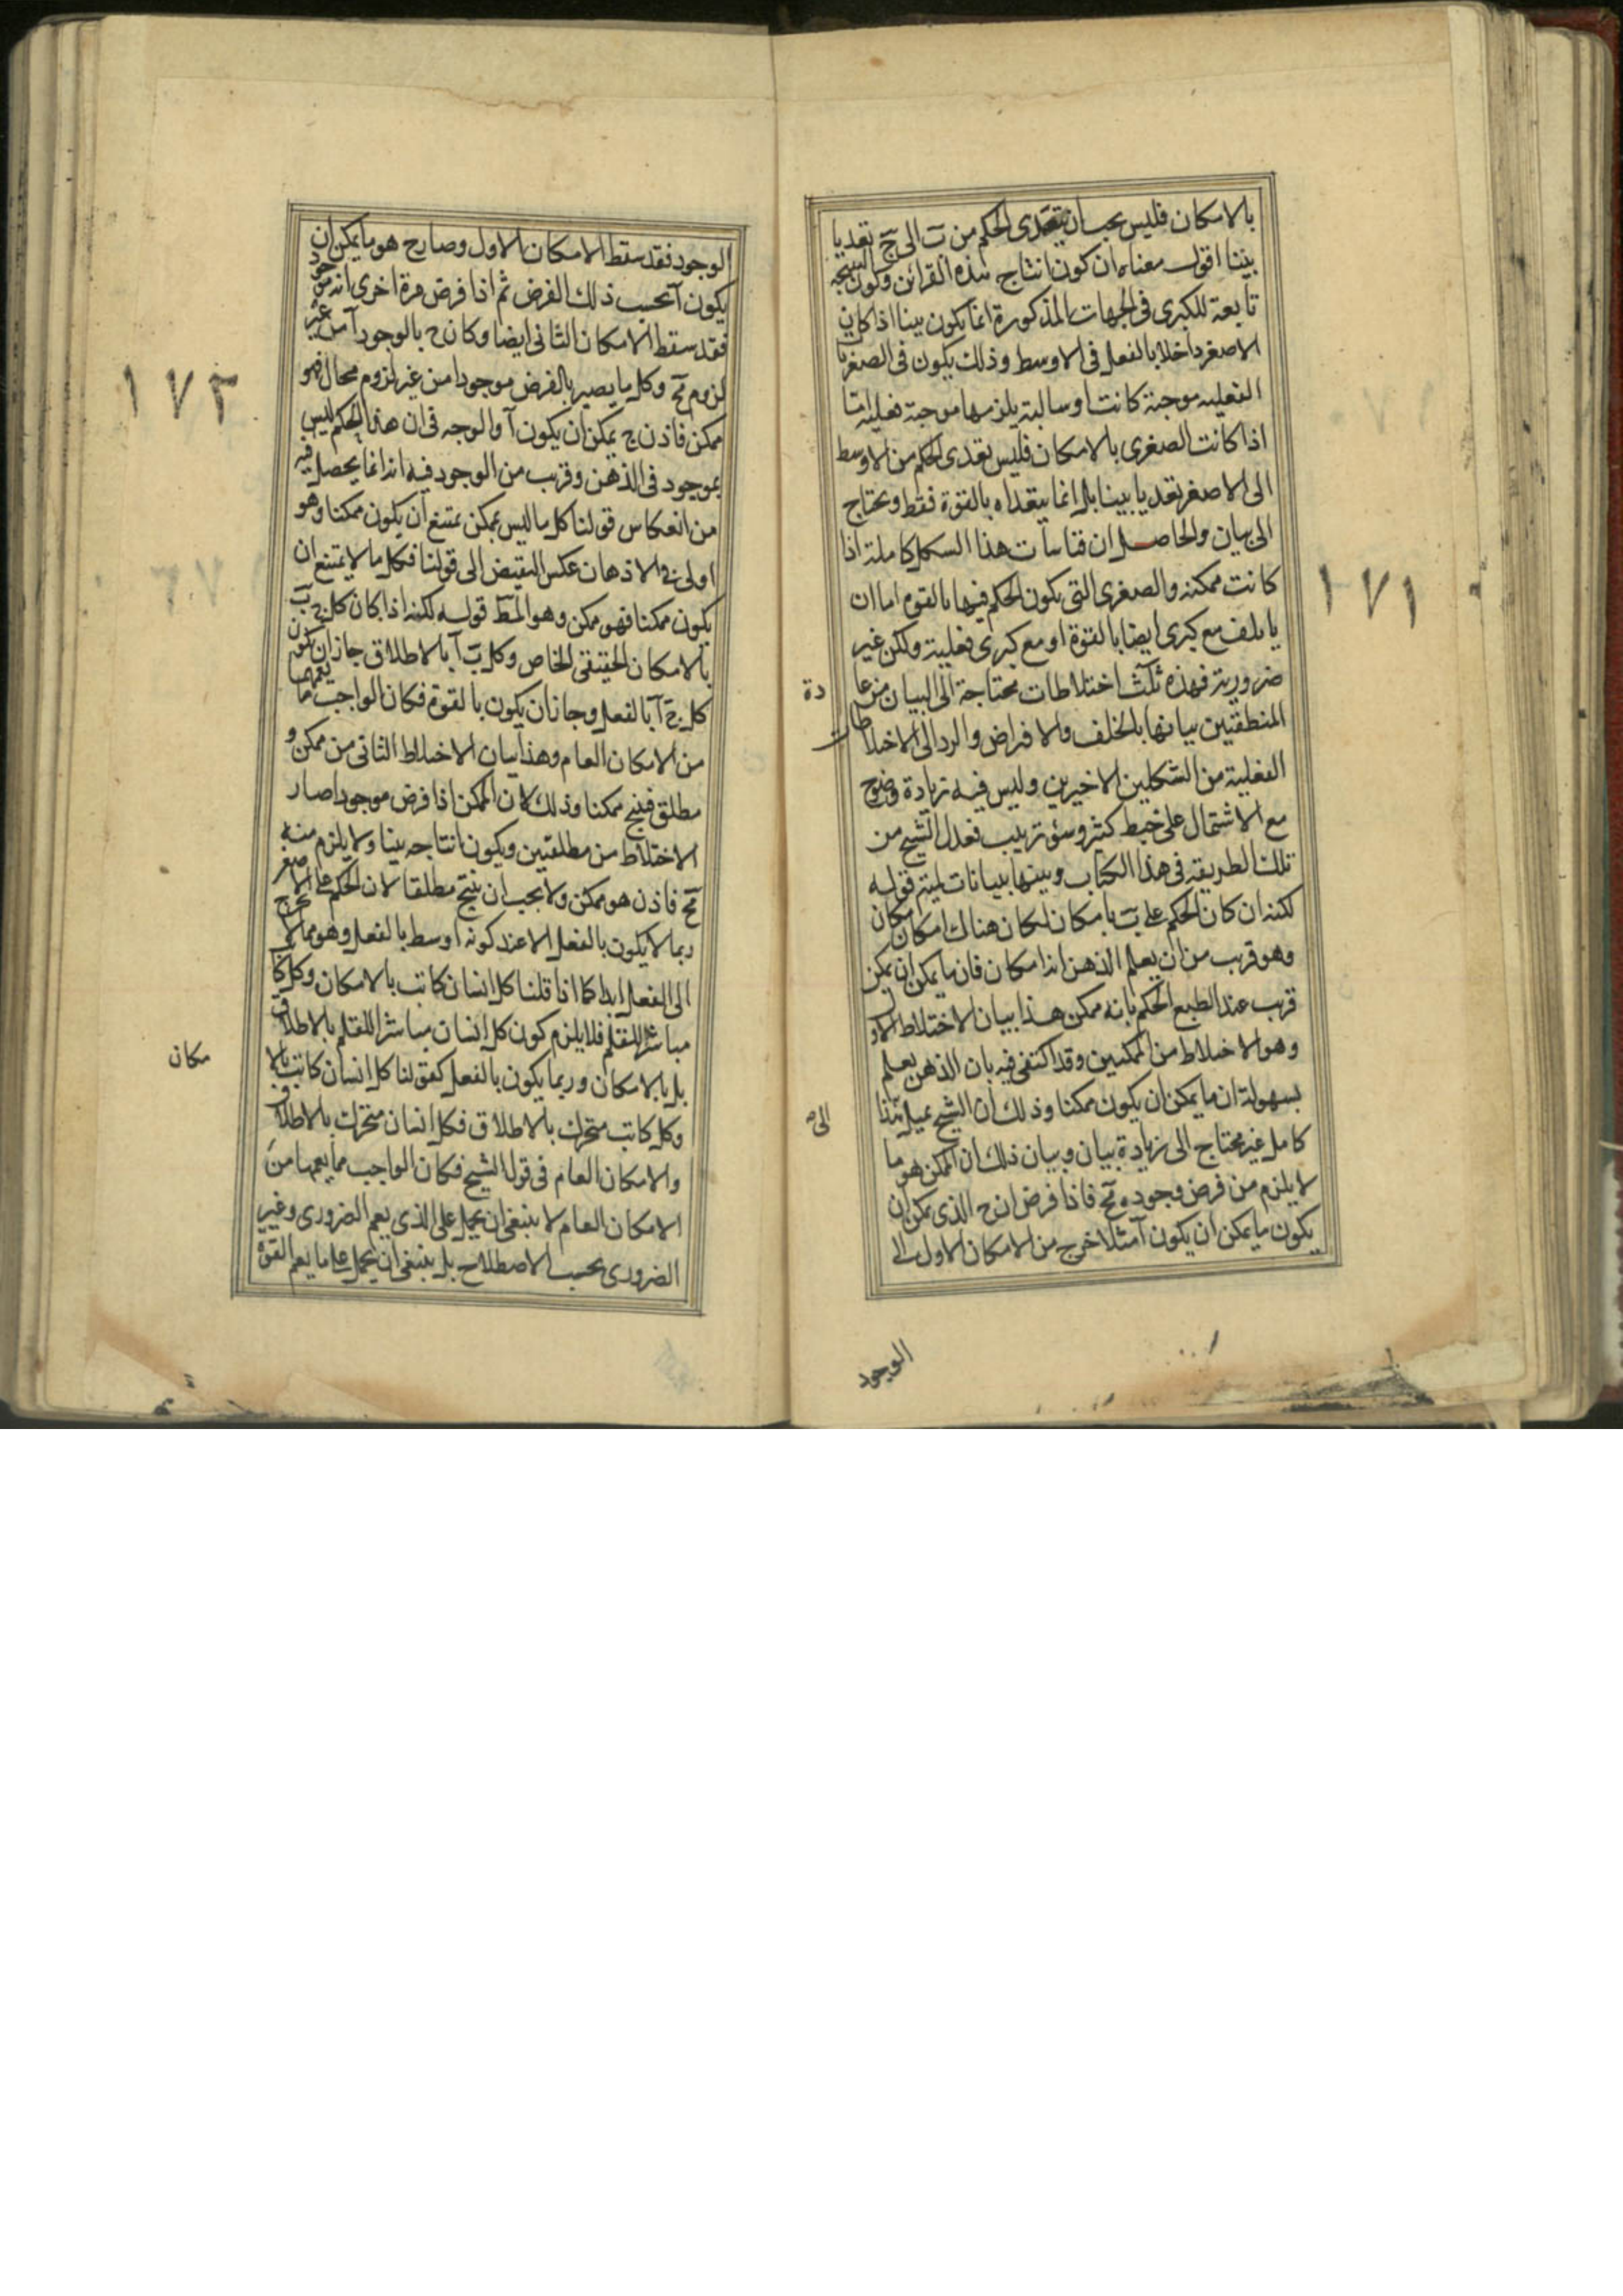 بالامكان فليس يجب ان يتعدى الحكم من بَ الى جَ تعديا
بينا اقول معناه ان كون انتاج هذه القرائن وكون النتيجة
تابعة للكبرى فى الجهات المذكورة انما يكون بينا اذا كان
الاصغر داخلا بالفعل فى الاوسط وذلك يكون فى الصغريا
الفعلية موجبة كانت او سالبة يلزمها موجبة فعلية امّا
اذا كانت الصغرى بالامكان فليس تعدى الحكم من الاوسط
الى الاصغر تعديا بينا بل انما يتعداه بالقوة فقط ويحتاج
الى بيان والحاصل ان قياسات هذا الشكل كاملة اذا
كانت ممكنة والصغرى التى يكون الحكم فيها بالقوة اما ان
يأتلف مع كبرى ايضا بالقوة او مع كبرى فعلية ولكن غير
ضرورية فهذه ثلث اختلاطات محتاجة الى البيان من عا
دة
المنطقيين بيانها بالخلف والافتراض والرد الى الاختلاطات
الفعلية من الشكلين الاخيرين وليس فيه زيادة وضوح
مع الاشتمال على خبط كثير وسوء ترتيب فعدل الشيخ من
تلك الطريقة فى هذا الكتاب وبينها ببيانات ليتم قوله
لكنه ان كان الحكم على بَ بامكان لكان هناك امكان امكان
وهو قريب من ان يعلم الذهن انه امكان فان ما يمكن ان يمكن
قريب عند الطبع الحكم بانه ممكن هذا بيان الاختلاط الاول
وهو الاختلاط من الممكنين وقد اكتفى فيه بان الذهن يعلم
بسهولة ان ما يمكن ان يكون ممكنا وذلك ان الشيخ يميل
الى
كامل غير محتاج الى زيادة بيان وبيان ذلك ان الممكن هو ما
لا يلزم من فرض وجوده مح فاذا فرض ان ج الذى يمكن ان
يكون ما يمكن ان يكون آ مثلا خرج من الامكان الاول الى
الوجود
١٧١
الوجود فقد سقط الامكان الاول وصار ج هو ما يمكن ان
يكون آ بحسب ذلك الفرض ثم اذا فرض مرة اخرى انه موجود
فقد سقط الامكان الثانى ايضا وكان ج بالوجود آ من غير
لزوم مح وكل ما يصير بالفرض موجودا من غير لزوم محال فهو
ممكن فاذن ج يمكن ان يكون آ والوجه فى ان هذا الحكم ليس
بموجود فى الذهن وقريب من الوجود فيه انه انما يحصل فيه
من انعكاس قولنا كل ما ليس بممكن يمتنع ان يكون ممكنا وهو
اولى فى الاذهان عكس النقيض الى قولنا فكل ما لا يمتنع ان
يكون ممكنا فهو ممكن وهو المط قوله لكنه اذا كان كل ج بَ
بالامكان الحقيقى الخاص وكل بَ آ بالاطلاق جاز ان يكون
كل ج آ بالفعل وجاز ان يكون بالقوة فكان الواجب ما يعمهما
من الامكان العام وهذا بيان الاختلاط الثانى من ممكن و
مطلق فينتج ممكنا وذلك لان الممكن اذا فرض موجودا صار
الاختلاط من مطلقتين ويكون انتاجه بينا ولا يلزم منه
مح فاذن هو ممكن ولا يجب ان ينتج مطلقا لان الحكم على الاصغر
ربما لا يكون بالفعل الا عند كونه اوسط بالفعل وهو مما لا يخرج
الى الفعل ابدا كما اذا قلنا كل انسان كاتب بالامكان وكل كا
مباشر للقلم فلا يلزم كون كل انسان مباشرا للقلم بالاطلاق
بل بالامكان وربما يكون بالفعل كقولنا كل انسان كاتب بالا
مكان
وكل كاتب متحرك بالاطلاق فكل انسان متحرك بالاطلاق
والامكان العام فى قول الشيخ فكان الواجب ما يعمها من
الامكان العام لا ينبغى ان يحمل على الذى يعم الضرورى وغير
الضرورى بحسب الاصطلاح بل ينبغى ان يحمل على ما يعم القوة
١٧٢